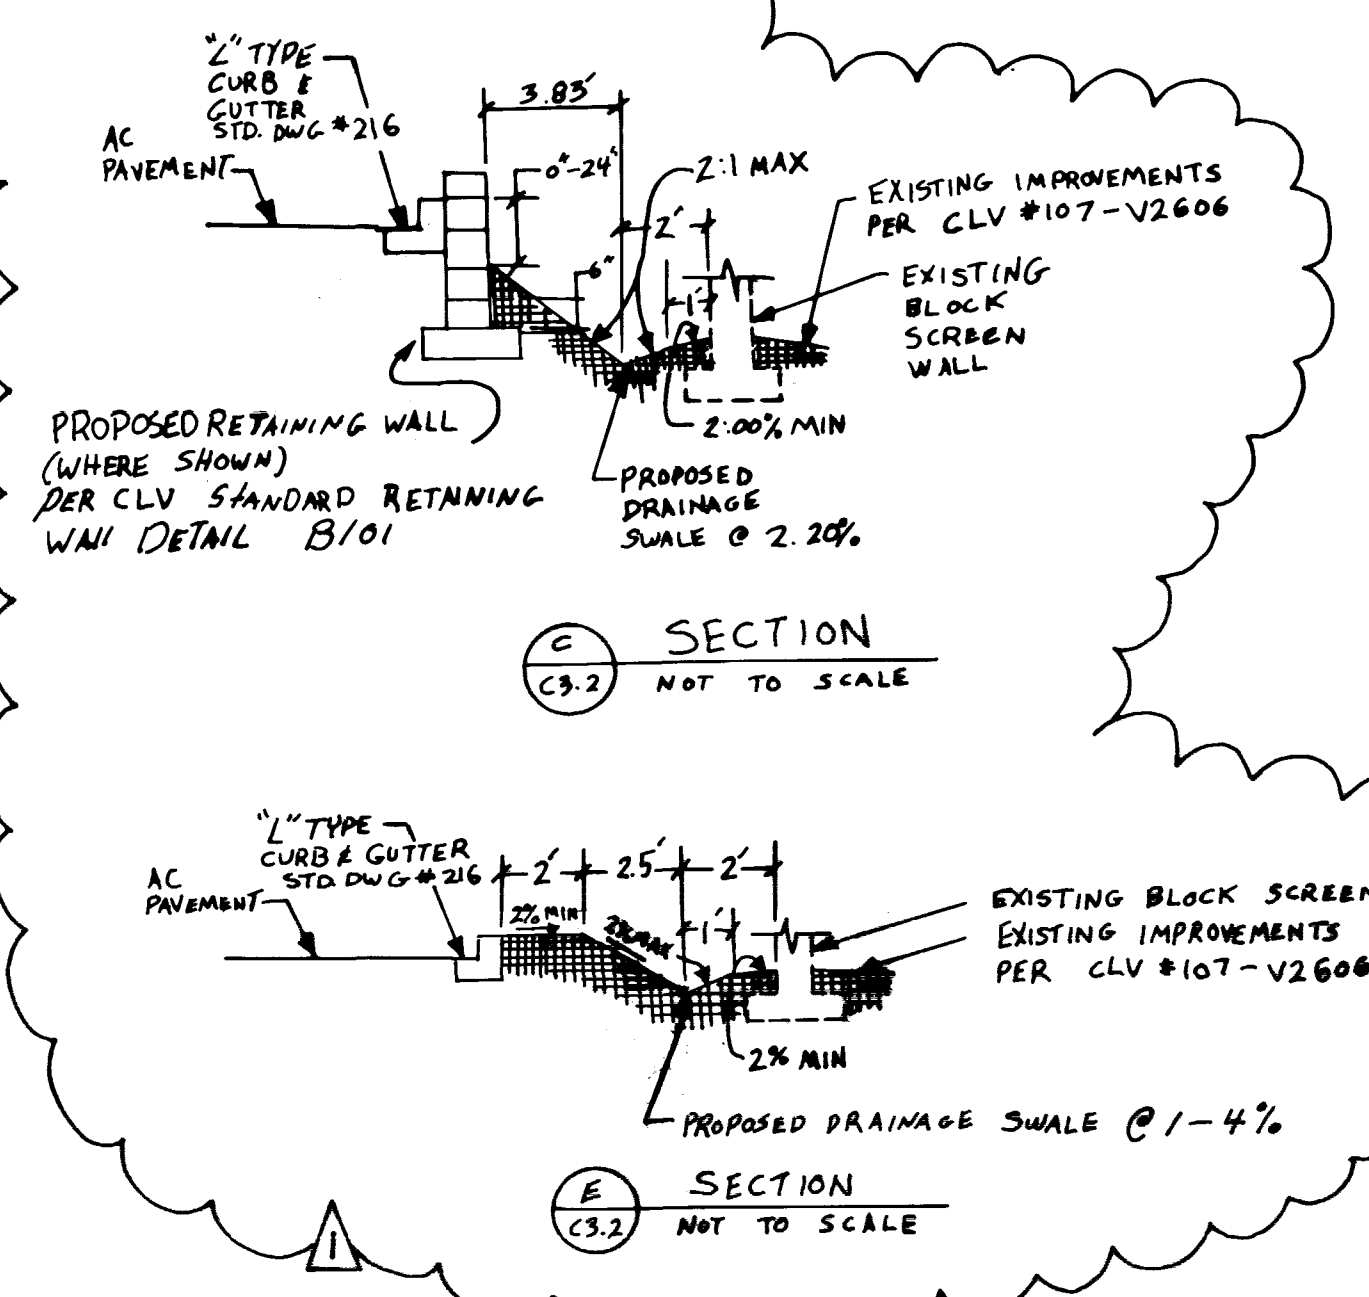 "L" TYPE
CURB &
GUTTER
STD. DWG #216
AC
PAVEMENT
3.83'
0"-24"
2:1 MAX
2'
6"
1'
EXISTING IMPROVEMENTS
PER CLV #107-V2606
EXISTING
BLOCK
SCREEN
WALL
PROPOSED RETAINING WALL
(WHERE SHOWN)
PER CLV STANDARD RETAINING
WALL DETAIL B/01
2.00% MIN
PROPOSED
DRAINAGE
SWALE @ 2.20%
C
C3.2
SECTION
NOT TO SCALE
"L" TYPE
CURB & GUTTER
STD. DWG #216
AC
PAVEMENT
2'
2.5'
2'
2% MIN
MAX
1'
EXISTING BLOCK SCREEN
EXISTING IMPROVEMENTS
PER CLV #107-V2606
2% MIN
PROPOSED DRAINAGE SWALE @ 1-4%
E
C3.2
SECTION
NOT TO SCALE
1